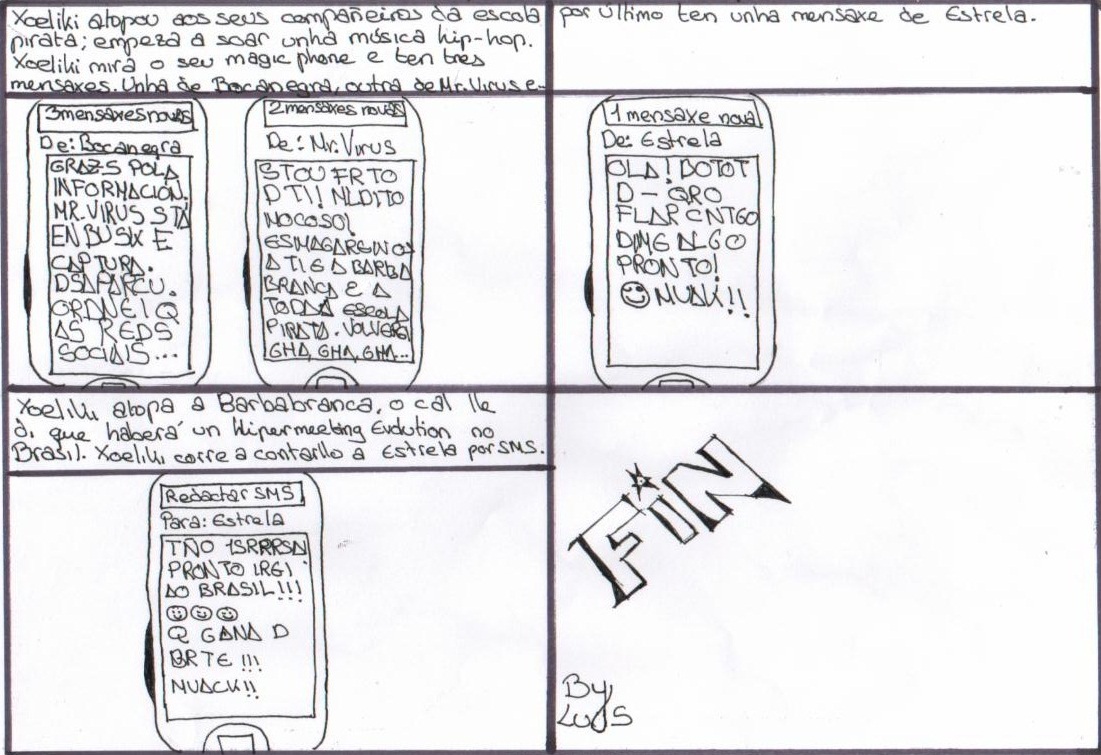 Xoeliki atopou aos seus compañeiros da escola
pirata; empeza a soar unha música hip-hop.
Xoeliki mira o seu magic phone e ten tres
mensaxes. Unha de Bocanegra, outra de Mr. Virus e
por último ten unha mensaxe de Estrela.
3 mensaxes novas
De: Bocanegra
GRAZ-S POLA
INFORMACIÓN.
MR. VIRUS STÁ
EN BUSK E
CAPTURA.
DSAPARCU.
ORDNEI Q
AS REDS
SOCIAIS...
2 mensaxes novas
De: Mr. Virus
STOU FRTO
D TI!! MLDITO
MOCOSO!
ESMAGAREINOS
A TI E A BARBA
BRANCA E A
TODA ESCOLA
PIRATA. VOLVEREI
GHA, GHA, GHA...
1 mensaxe nova
De: Estrela
OLA! BOTOT
D - QRO
FLAR CNTGO
DIME ALGO
PRONTO!
☺ MUAK!!
Xoeliki atopa a Barbabranca, o cal lle
di que haberá un Hipermeeting Evolution no
Brasil. Xoeliki corre a contarllo a Estrela por SMS.
Redactar SMS
Para: Estrela
TÑO 1SRRRSA
PRONTO IREI
AO BRASIL!!!
☺☺☺
Q GANA D
BRTE !!!
MUACK!!
FIN
By
Luis